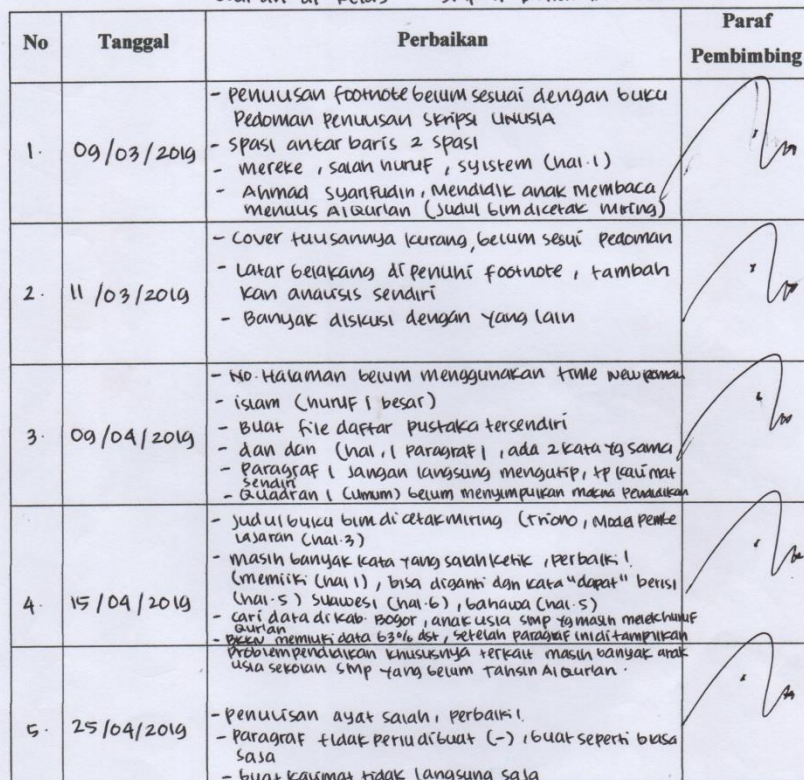 di kelas
No
Tanggal
Perbaikan
Paraf
Pembimbing
1.
09/03/2019
- penulisan footnote belum sesuai dengan buku
Pedoman penulisan skripsi UNUSIA
- spasi antar baris 2 spasi
- mereke, salah huruf, syistem (hal.1)
- Ahmad Syarifudin, Mendidik anak Membaca
menulis AlQur'an (judul blm dicetak miring)
2.
11/03/2019
- Cover tulisannya kurang, belum sesui pedoman
- Latar belakang di penuhi footnote, tambah
kan analisis sendiri
- Banyak diskusi dengan yang lain
3.
09/04/2019
- No. Halaman belum menggunakan time new roman
- islam (huruf I besar)
- Buat file daftar pustaka tersendiri
- dan dan (hal, 1 paragraf 1, ada 2 kata yg sama
- Paragraf 1 Jangan langsung mengutip, tp kalimat
sendiri
- Quadran 1 (umum) belum menyimpulkan makna Pendidikan
4.
15/04/2019
- judul buku blm di cetak miring (Triono, Model pembe
lajaran (hal.3)
- masih banyak kata yang salah ketik, perbaiki!
(memiiki (hal 1), bisa diganti dgn kata "dapat" berisi
(hal.5) Sulawesi (hal.6), bahawa (hal.5)
- cari data di kab. Bogor, anak usia smp yg masih melek huruf
Qur'an
- memiliki data 63% dst, setelah paragraf ini ditampilkan
problem pendidikan khususnya terkait masih banyak anak
usia sekolah smp yang belum Tahsin Al Qur'an.
5.
25/04/2019
- penulisan ayat salah, perbaiki!
- paragraf tidak perlu dibuat (-), buat seperti biasa
saja
- buat kalimat tidak langsung saja